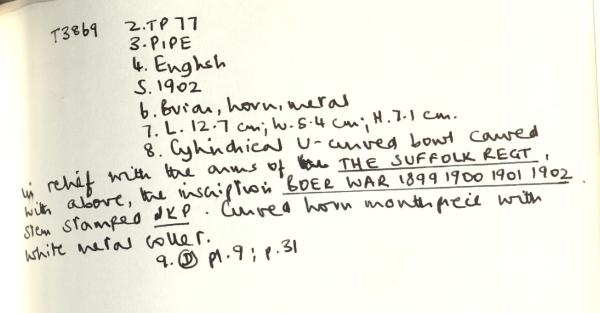 T3869 2. TP 77
3. PIPE
4. English
5. 1902
6. Briar, horn, metal
7. L. 12.7 cm; W. 5.4 cm; H. 7.1 cm.
8. Cylindrical U-curved bowl carved
in relief with the arms of THE SUFFOLK REGT,
with above, the inscription BOER WAR 1899 1900 1901 1902.
Stem stamped JKP. Curved horn mouthpiece with
white metal collar.
9. D pl. 9; p. 31